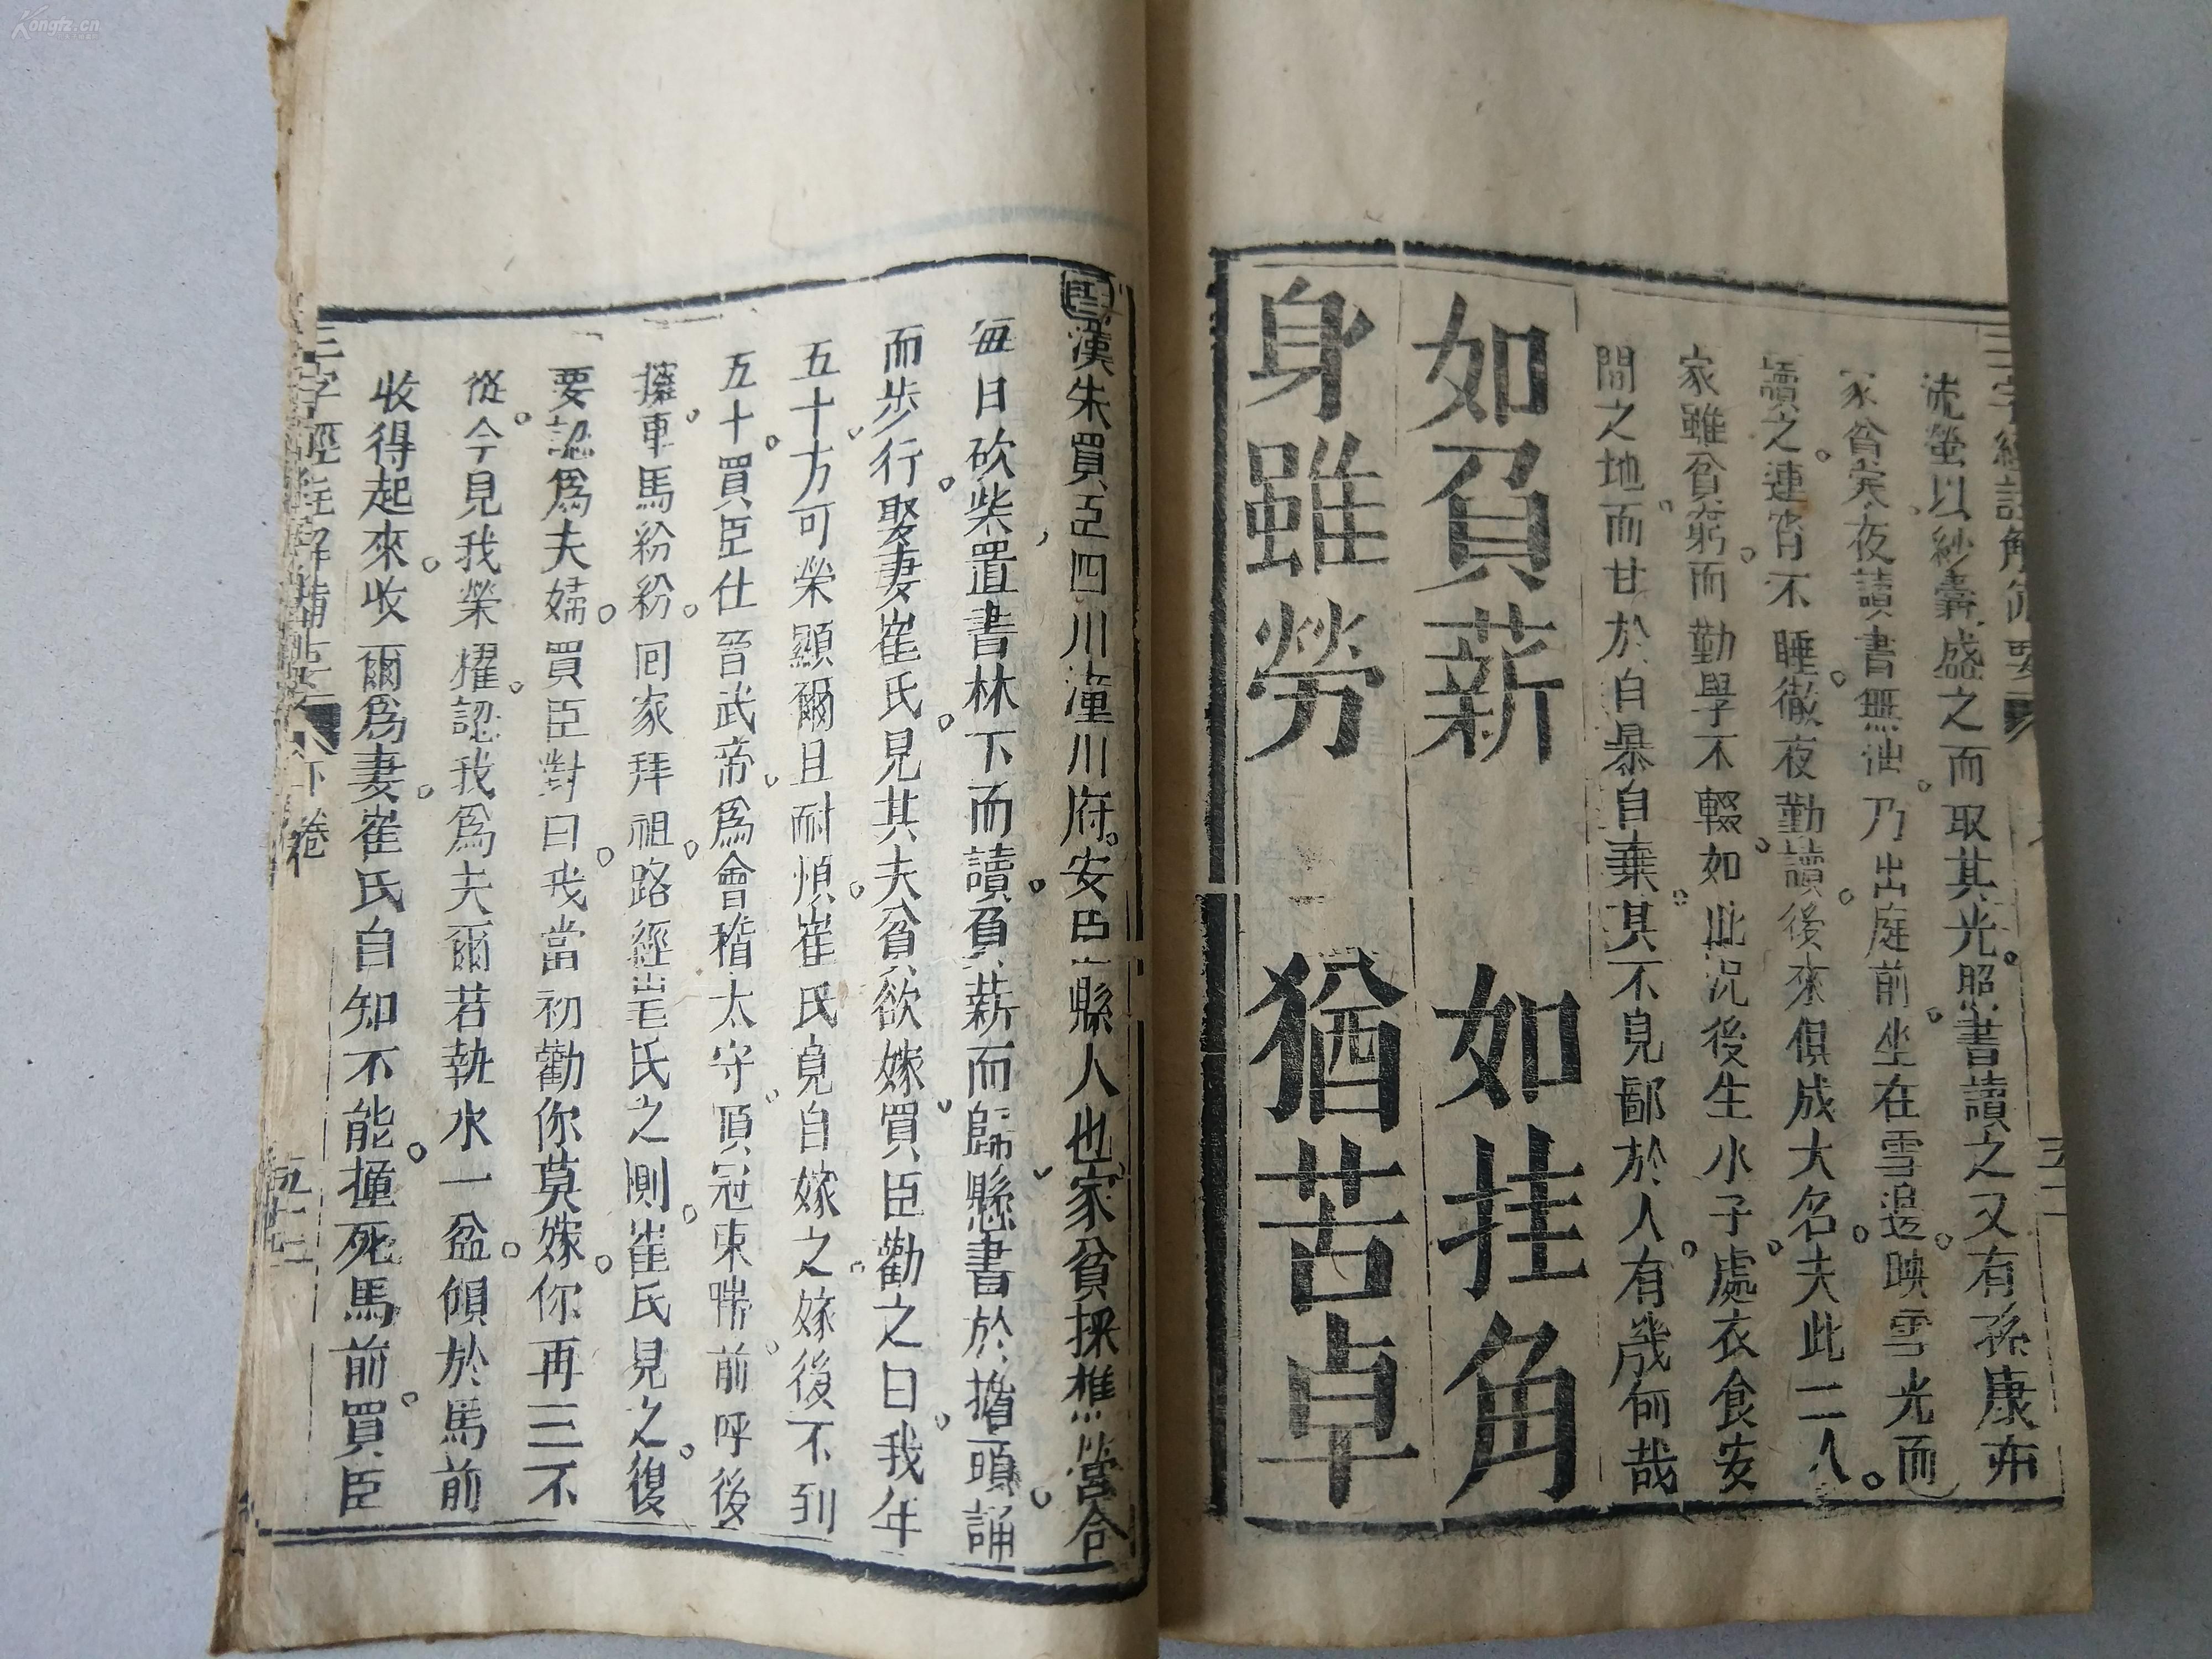 三字經註解備要
流螢以紗囊盛之而取其光照書讀之又有孫康亦
家貧窮夜讀書無油乃出庭前坐在雪邊映雪光而
讀之連宵不睡徹夜勤讀後來俱成大名夫此二人
家雖貧窮而勤學不輟如此况後生小子處衣食安
閒之地而甘於自暴自棄其不見鄙於人有幾何哉
如負薪 如挂角
身雖勞 猶苦卓
漢朱買臣四川潼川府安縣人也家貧採樵營合
每日砍柴置書林下而讀負薪而歸懸書於擔頭誦
而步行娶妻崔氏見其夫貧欲嫁買臣勸之曰我年
五十方可榮顯爾且耐煩崔氏竟自嫁之嫁後不到
五十買臣仕晉武帝為會稽太守頂冠束帶前呼後
擁車馬紛紛囘家拜祖路經崔氏之側崔氏見之復
要認為夫婦買臣對曰我當初勸你莫嫁你再三不
從今見我榮耀認我為夫爾若執水一盆傾於馬前
收得起來收爾為妻崔氏自知不能撞死馬前買臣
三字經註解備要
下卷
五十二
Kongfz.cn